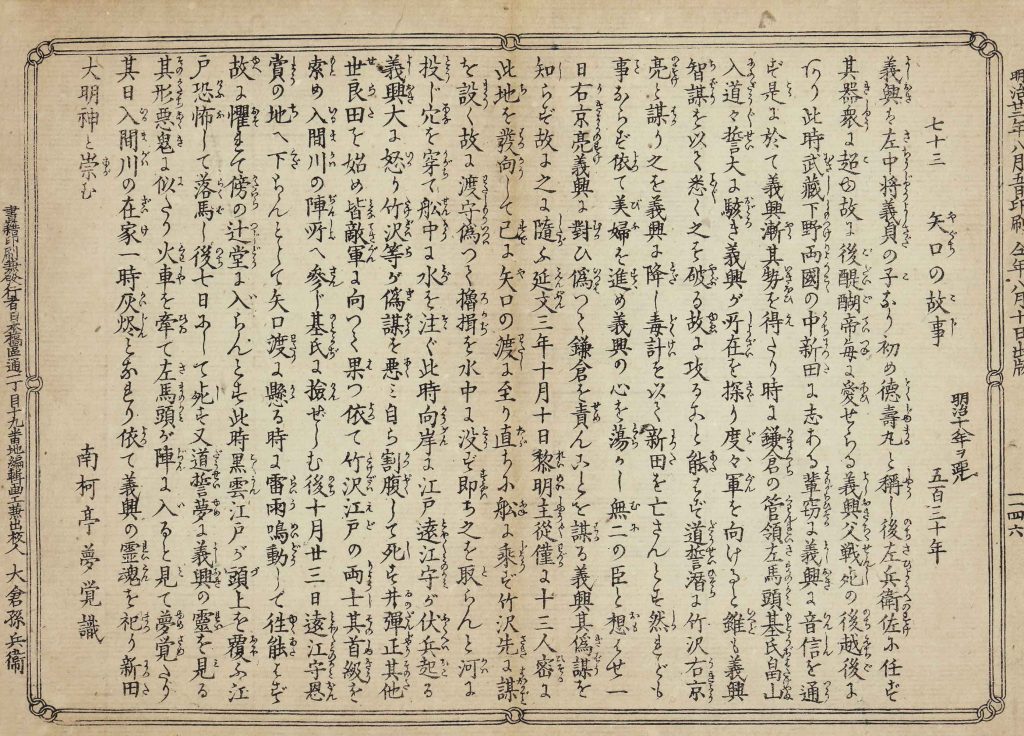 明治廿三年八月五日印刷仝年八月十日出版
一二四六
七十三 矢口の故事
明治十年ヲ距ル 五百三十年
義興は左中将義貞の子なり初め徳壽丸と稱し後左兵衛佐に任ず
其器衆に超ゆ故に後醍醐帝毎に愛せらる義興父戦死の後越後に
あり此時武藏下野両國の中新田に志ある輩窃に義興に音信を通
ず是に於て義興漸其勢を得たり時に鎌倉の管領左馬頭基氏畠山
入道々誓大に駭き義興が所在を探り度々軍を向けると雖も義興
智謀を以て悉く之を破る故に攻ること能はず道誓潜に竹沢右京
亮と謀り之を義興に降し毒計を以て新田を亡さんとす然れども
事ならず依て美婦を進め義興の心を蕩かし無二の臣と想はせ一
日右京亮義興に對ひ偽つて鎌倉を責んことを謀る義興其偽謀を
知らず故に之に隨ふ延文三年十月十日黎明主從僅に十三人密に
此地を發向して已に矢口の渡に至り直ちに小船に乗ず竹沢先に謀
を設く故に渡守偽つて櫓揖を水中に没ず即ち之を取らんと河に
投じ穴を穿て船中に水を注ぐ此時向岸に江戸遠江守が伏兵起る
義興大に怒り竹沢等が偽謀を悪み自ら割腹して死す井弾正其他
世良田を始め皆敵軍に向つて果つ依て竹沢江戸の両士其首級を
索め入間川の陣所へ参じ基氏に撿ぜしむ後十月廿三日遠江守恩
賞の地へ下らんとして矢口渡に懸る時に雷雨鳴動して徃能はず
故に懼れて傍の辻堂に入らんとす此時黒雲江戸が頭上を覆ふ江
戸恐怖して落馬し後七日にして死す又道誓夢に義興の靈を見る
其形悪鬼に似たり火車を牽て左馬頭が陣に入ると見て夢覚たり
其日入間川の在家一時灰燼となれり依て義興の霊魂を祀り新田
大明神と崇む
南柯亭夢覚識
書籍印刷兼發行者日本橋區通一丁目十九番地編輯画工兼出校人 大倉孫兵衛